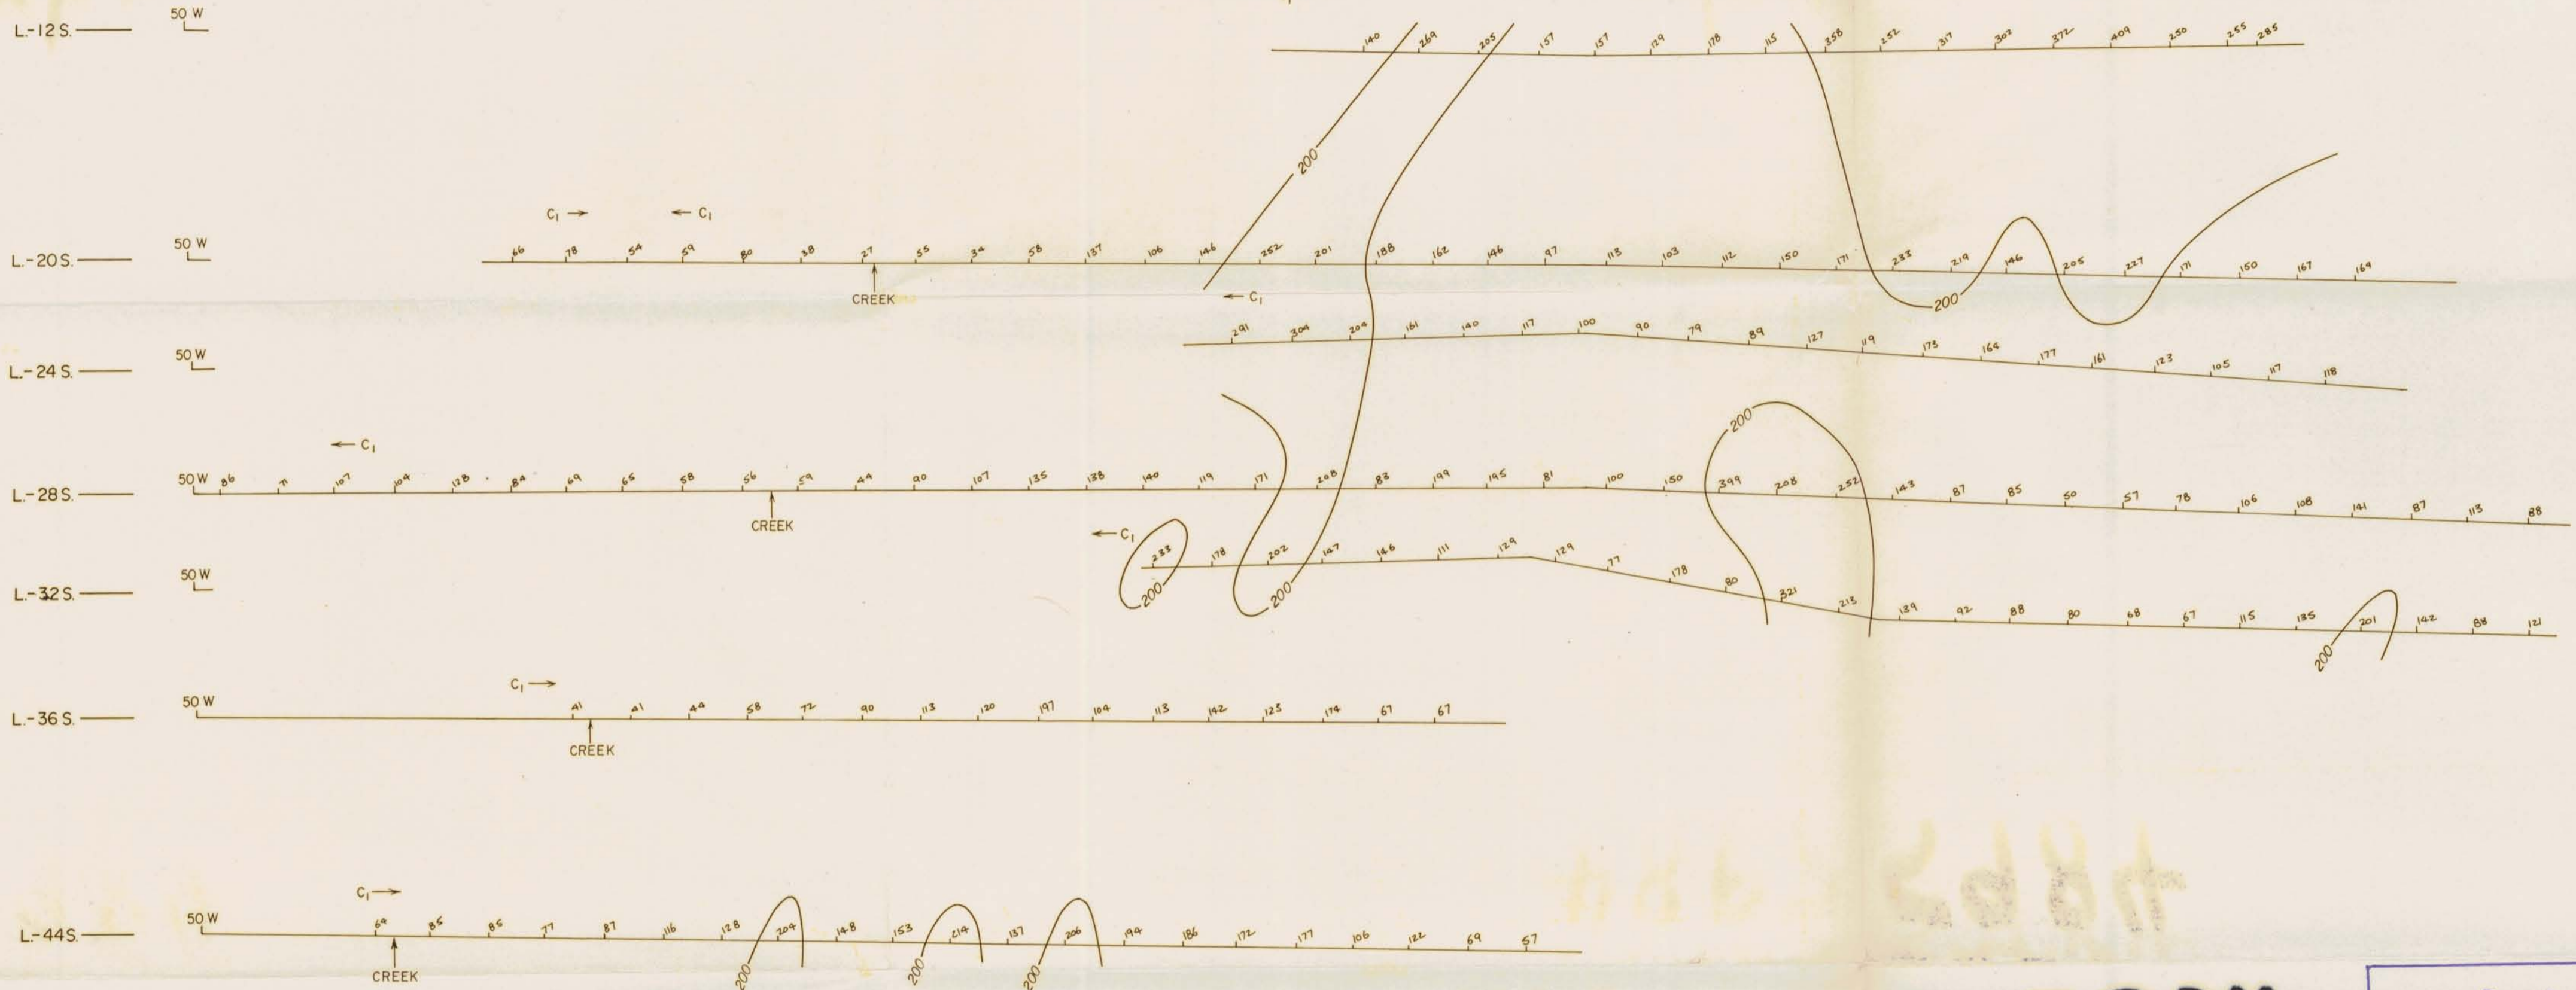 L.-12S. 50 W 140 269 205 157 157 129 178 115 358 252 317 302 372 409 250 255 285
200
C₁ → ← C₁
L.-20S. 50 W 66 78 54 59 80 38 27 55 34 58 137 106 146 252 201 188 162 146 97 113 103 112 150 171 233 219 146 205 227 171 150 167 169
CREEK
← C₁
200
L.-24S. 50 W 291 304 204 161 140 117 100 90 79 89 127 119 173 164 177 161 123 105 117 118
200
← C₁
L.-28S. 50 W 86 71 107 109 128 84 69 65 58 56 59 44 90 107 135 138 140 119 171 208 83 199 195 81 100 150 399 208 252 143 87 85 50 57 78 106 108 141 87 113 88
CREEK
← C₁
L.-32S. 50 W 233 178 202 147 146 111 129 129 77 178 80 321 213 139 92 88 80 68 67 115 135 201 142 88 121
200 200
200
C₁ →
L.-36S. 50 W 41 41 44 58 72 90 113 120 197 104 113 142 123 174 67 67
CREEK
C₁ →
L.-44S. 50 W 64 85 85 77 87 116 128 204 148 153 214 137 206 194 186 172 177 106 122 69 57
CREEK 200 200 200